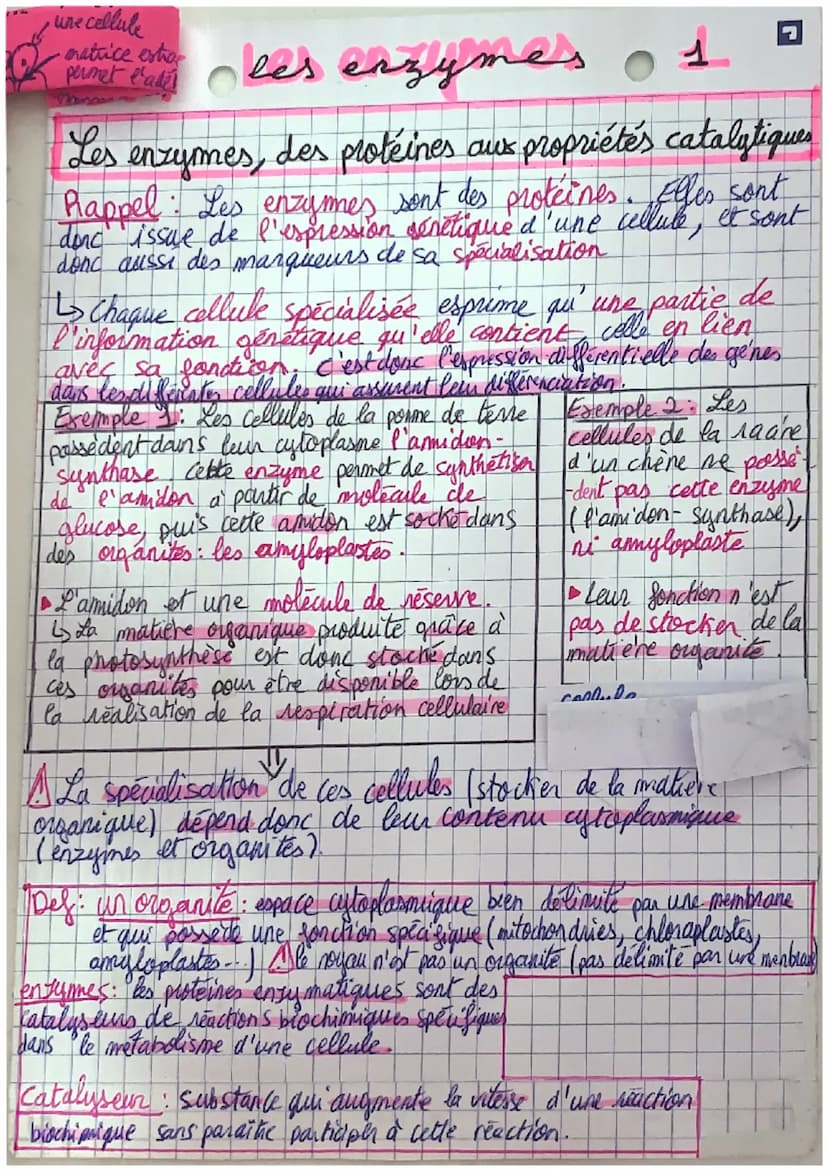 une cellule
matrice extra
permet l'adé
les enzymes 1
Les enzymes, des protéines aux propriétés catalytiques
Rappel : Les enzymes sont des protéines. Elles sont
donc issue de l'expression génétique d'une cellule, et sont
donc aussi des marqueurs de sa spécialisation
↳ Chaque cellule spécialisée esprime qu'une partie de
l'information génétique qu'elle contient celle en lien
avec sa fonction. C'est donc l'expression différentielle des gènes
dans les différentes cellules qui assurent leur différenciation.
Exemple 1 : Les cellules de la pomme de terre
possèdent dans leur cytoplasme l'amidon-
synthase cette enzyme permet de synthétiser
de l'amidon à partir de molécule de
glucose, puis cette amidon est socké dans
des organites : les amyloplastes.
▸ L'amidon et une molécule de réserve.
↳ La matière organique produite grâce à
la photosynthèse est donc stocké dans
ces organites pour être disponible lors de
la réalisation de la respiration cellulaire
Exemple 2 : Les
cellules de la racine
d'un chêne ne possè-
-dent pas cette enzyme
(l'amidon-synthase),
ni amyloplaste
▸ Leur fonction n'est
pas de stocker de la
matière organite.
cellule
⇓
⚠ La spécialisation de ces cellules (stocker de la matière
organique) dépend donc de leur contenu cytoplasmique
(enzymes et organites).
Def : un organite : espace cytoplasmique bien délimité par une membrane
et qui possède une fonction spécifique (mitochondries, chloroplastes,
amyloplastes...) ⚠ le noyau n'est pas un organite (pas délimité par une membrane
enzymes : les protéines enzymatiques sont des
catalyseurs de réactions biochimiques spécifiques
dans le métabolisme d'une cellule.
Catalyseur : substance qui augmente la vitesse d'une réaction
biochimique sans paraître participer à cette réaction.